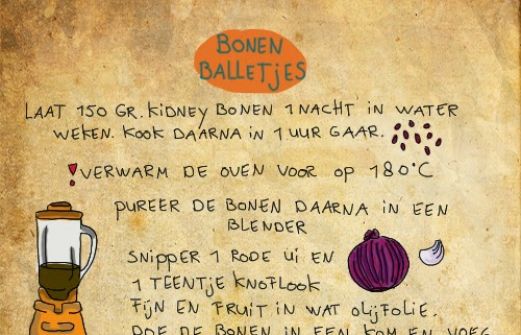 BONEN
BALLETJES
LAAT 150 GR. KIDNEY BONEN 1 NACHT IN WATER
WEKEN. KOOK DAARNA IN 1 UUR GAAR.
! VERWARM DE OVEN VOOR OP 180°C
PUREER DE BONEN DAARNA IN EEN
BLENDER
SNIPPER 1 RODE UI EN
1 TEENTJE KNOFLOOK
FIJN EN FRUIT IN WAT OLIJFOLIE.
DOE DE BONEN IN EEN KOM EN VOEG